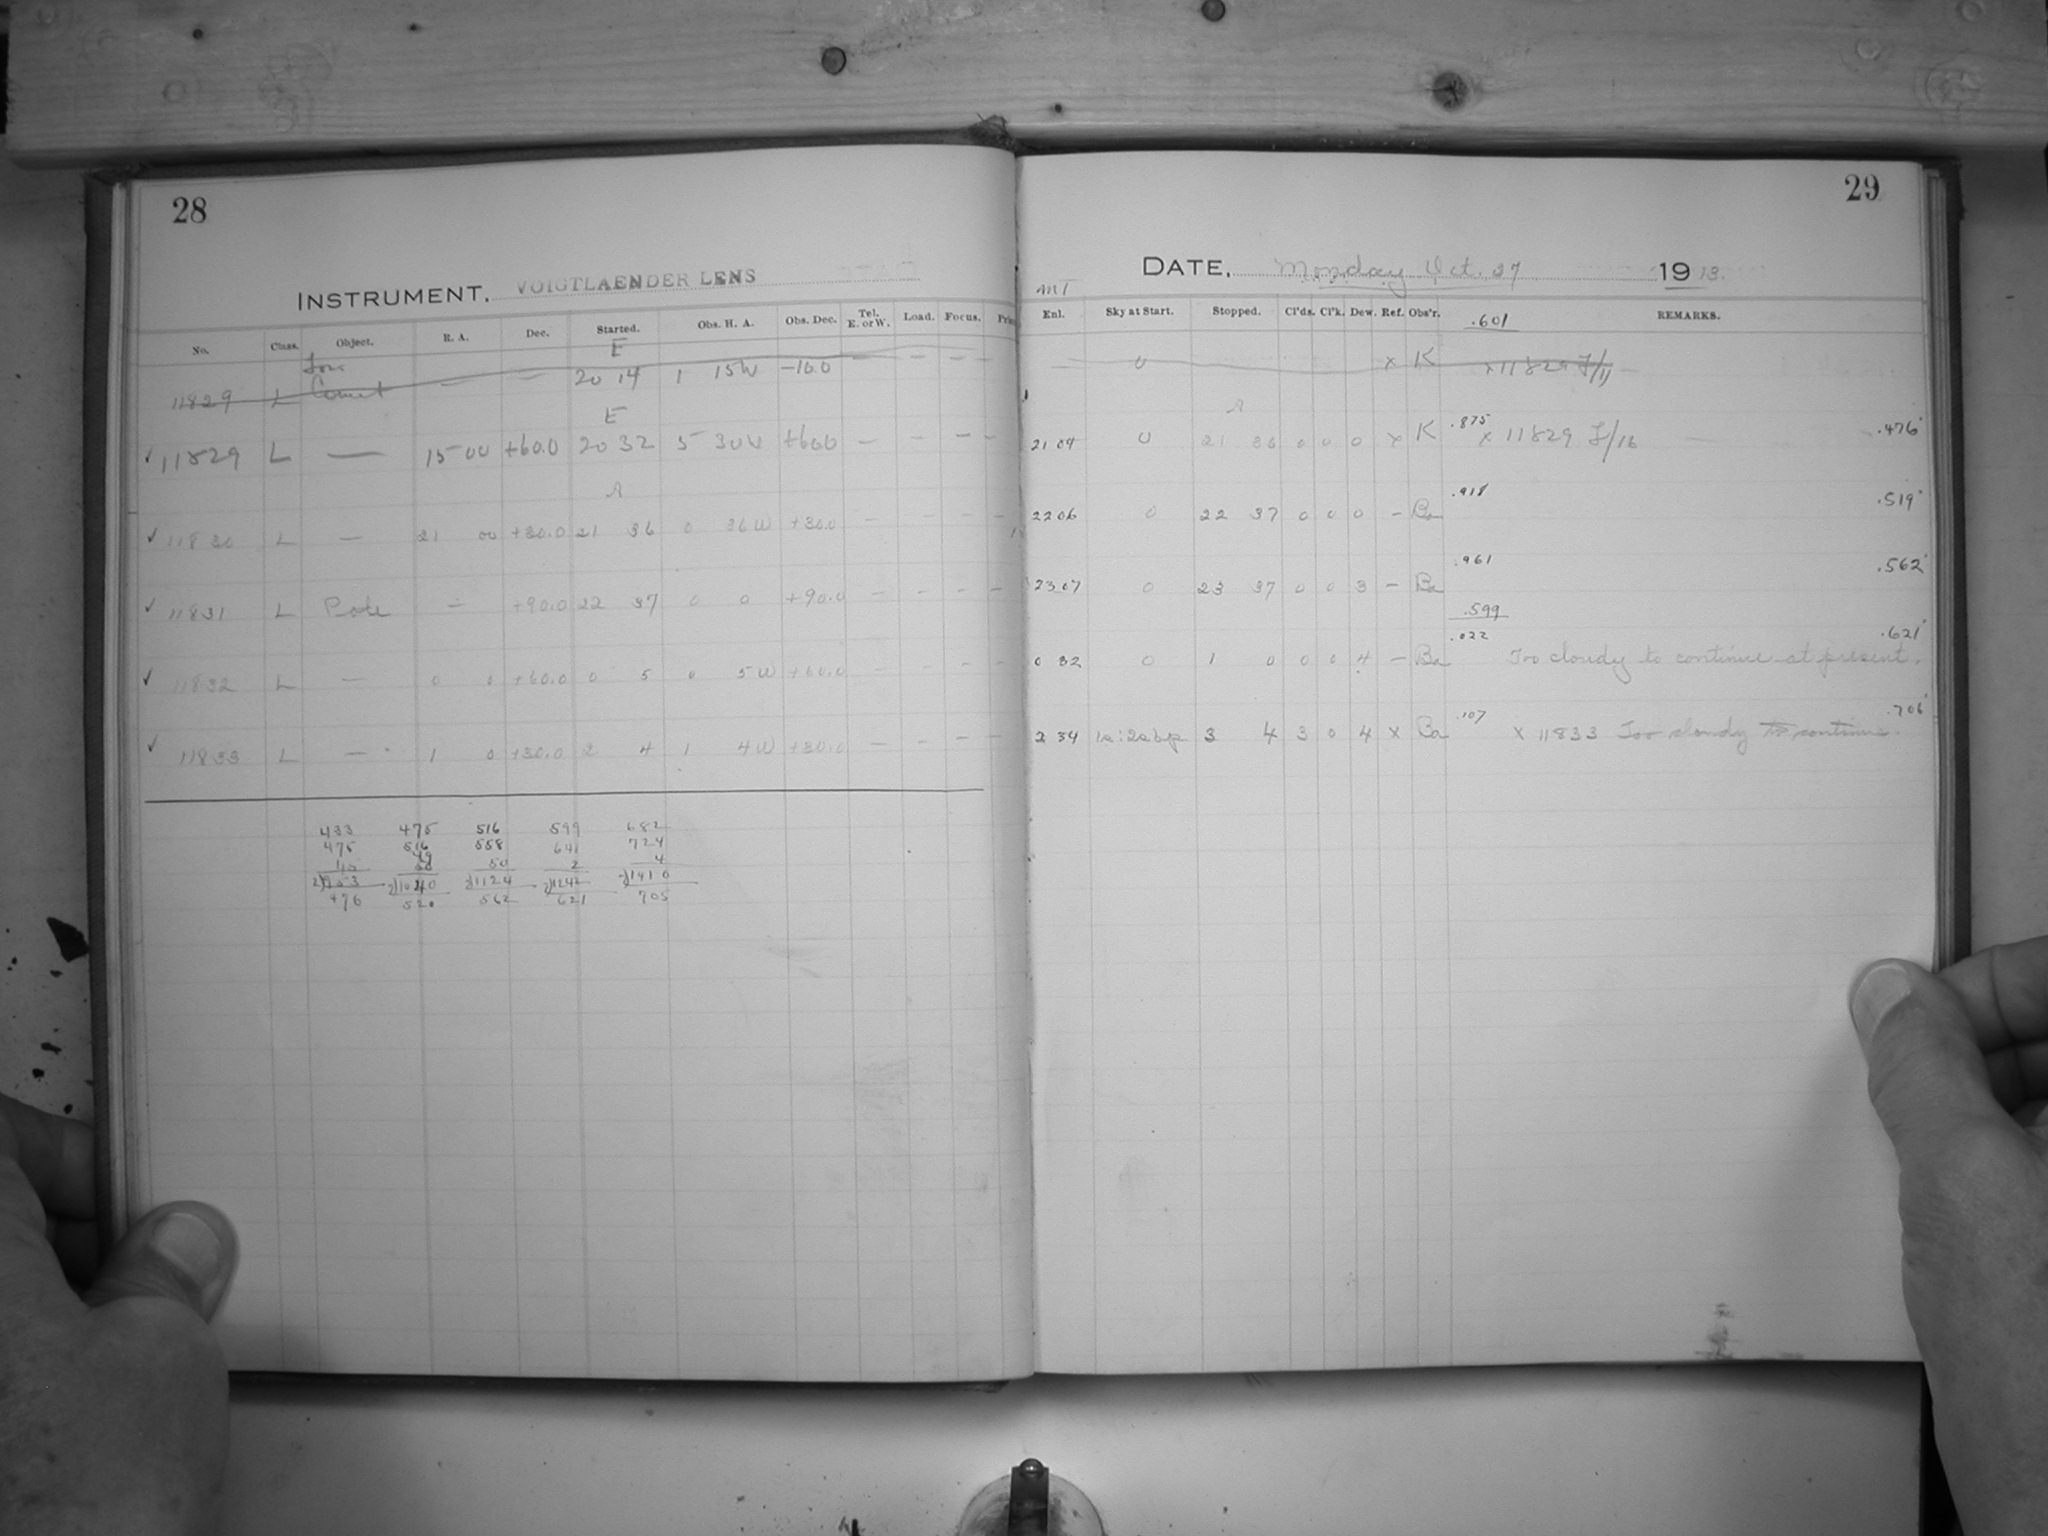 28
INSTRUMENT, VOIGTLAENDER LENS
No. Class. Object. R. A. Dec. Started. Obs. H. A. Obs. Dec. Tel. E. or W. Load. Focus.
E
11829 L Comet — — 20 14 1 15W −10.0 — — — —
E
✓ 11829 L — 15 00 +60.0 20 32 5 30W +60.0 — — — —
A
✓ 11830 L — 21 00 +30.0 21 36 0 36W +30.0 — — — —
✓ 11831 L Pole — +90.0 22 37 0 0 +90.0 — — — —
✓ 11832 L — 0 0 +60.0 0 5 0 5W +60.0 — — — —
✓ 11833 L — 1 0 +30.0 2 4 1 4W +30.0 — — — —
433 475 516 599 682
475 516 558 641 724
49 50 2 4
2)953 2)1040 2)1124 2)1242 2)1410
476 520 562 621 705
29
DATE, Monday Oct. 27 1913.
Enl. Sky at Start. Stopped. Cl'ds. Cl'k. Dew. Ref. Obs'r. .601 REMARKS.
— 0 x K x 11829 F/11
A
21 04 0 21 36 0 0 0 x K .875 x 11829 F/16 — .476
22 06 0 22 37 0 0 0 — Ba .918 .519
23 07 0 23 37 0 0 3 — Ba .961 .562
.599
0 32 0 1 0 0 0 4 — Ba .022 Too cloudy to continue at present. .621
2 34 3 4 3 0 4 x Ba .107 x 11833 Too cloudy to continue. .706